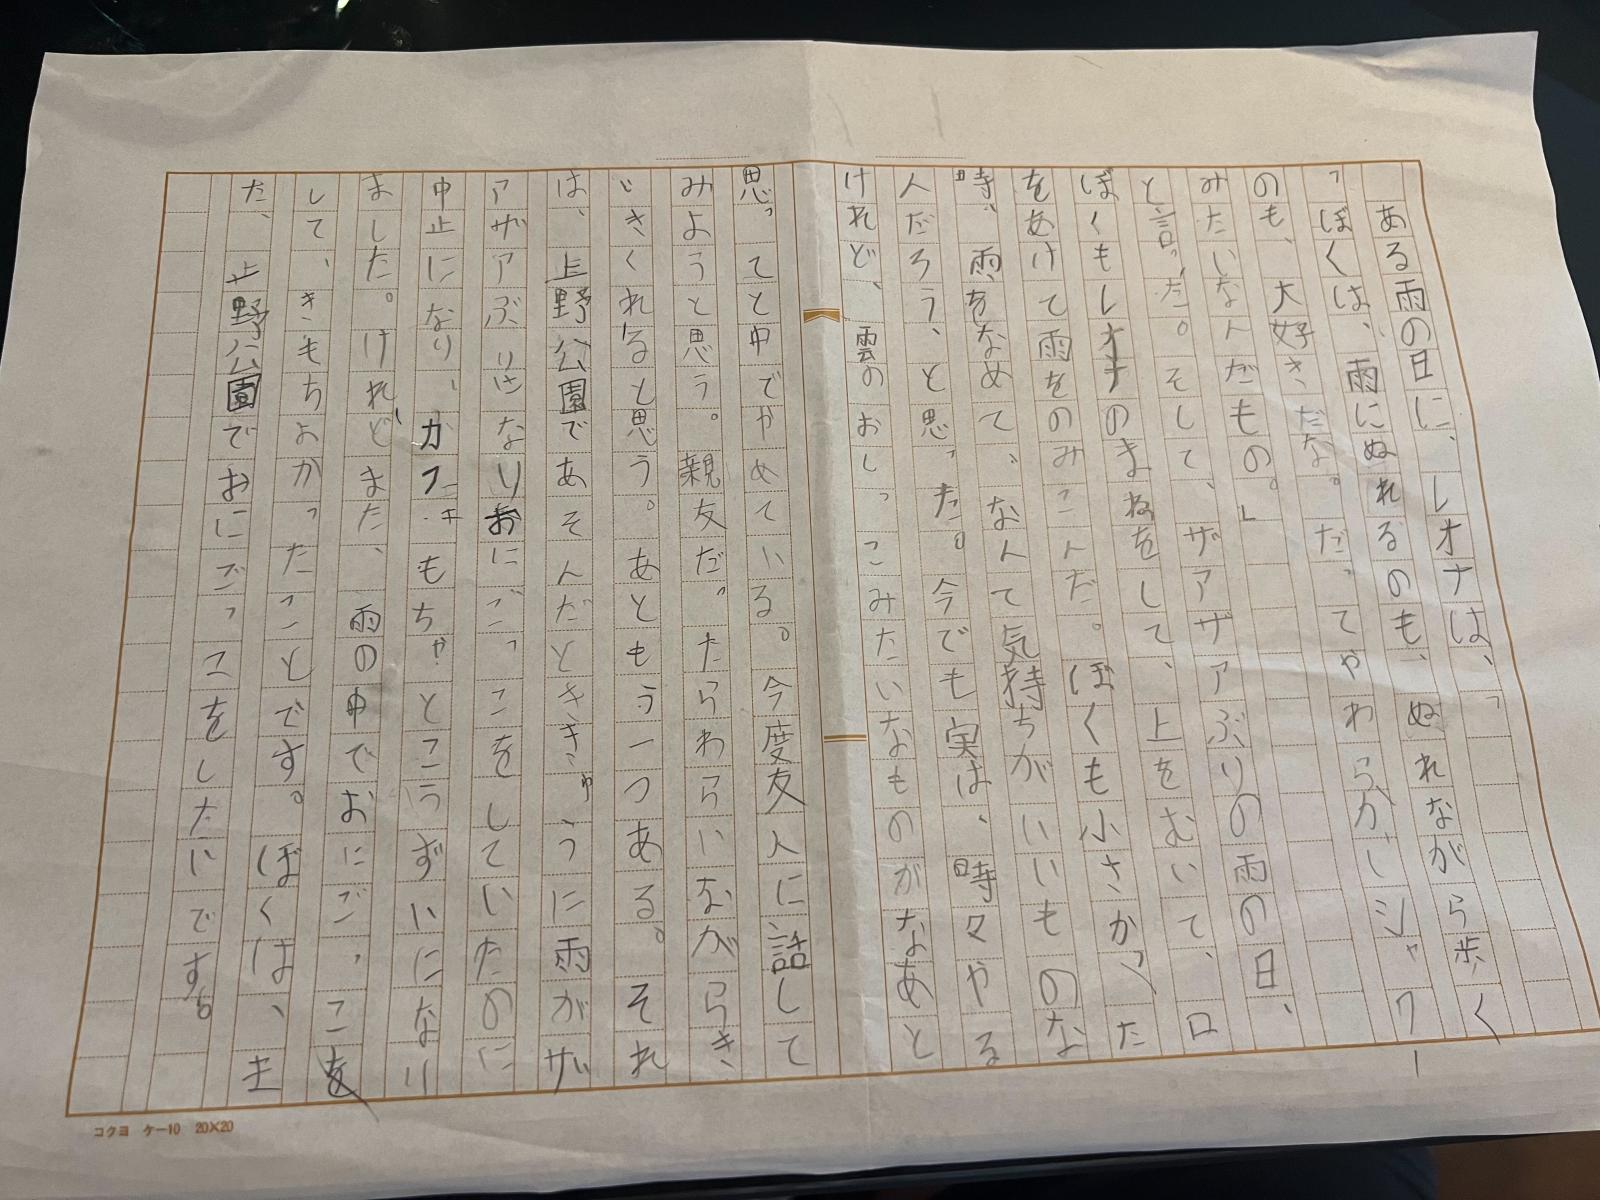 ある雨の日に、レオナは、「
「ぼくは、雨にぬれるのも、ぬれながら歩く
のも、大好きだな。だってやわらかいシャワー
みたいなんだもの。」
と言った。そして、ザアザアぶりの雨の日、
ぼくもレオナのまねをして、上をむいて、口
をあけて雨をのみこんだ。ぼくも小さかった
時、雨をなめて、なんて気持ちがいいものな
んだろう、と思った。今でも実は、時々やる
けれど、雲のおしっこみたいなものがなあと
思ってと中でやめている。今度友人に話して
みようと思う。親友だったらわらいながらき
いきくれると思う。あともう一つある。それ
は、上野公園であそんだときき、ゅうに雨がザ
アザアぶりになりおにごっこをしていたのに
中止になり、カフェもちゃとこうずいになり
ました。けれどまた、雨の中でおにごっこを
して、きもちよかったことです。ぼくは、ま
た、上野公園でおにごっこをしたいです。
コクヨ ケー10 20×20